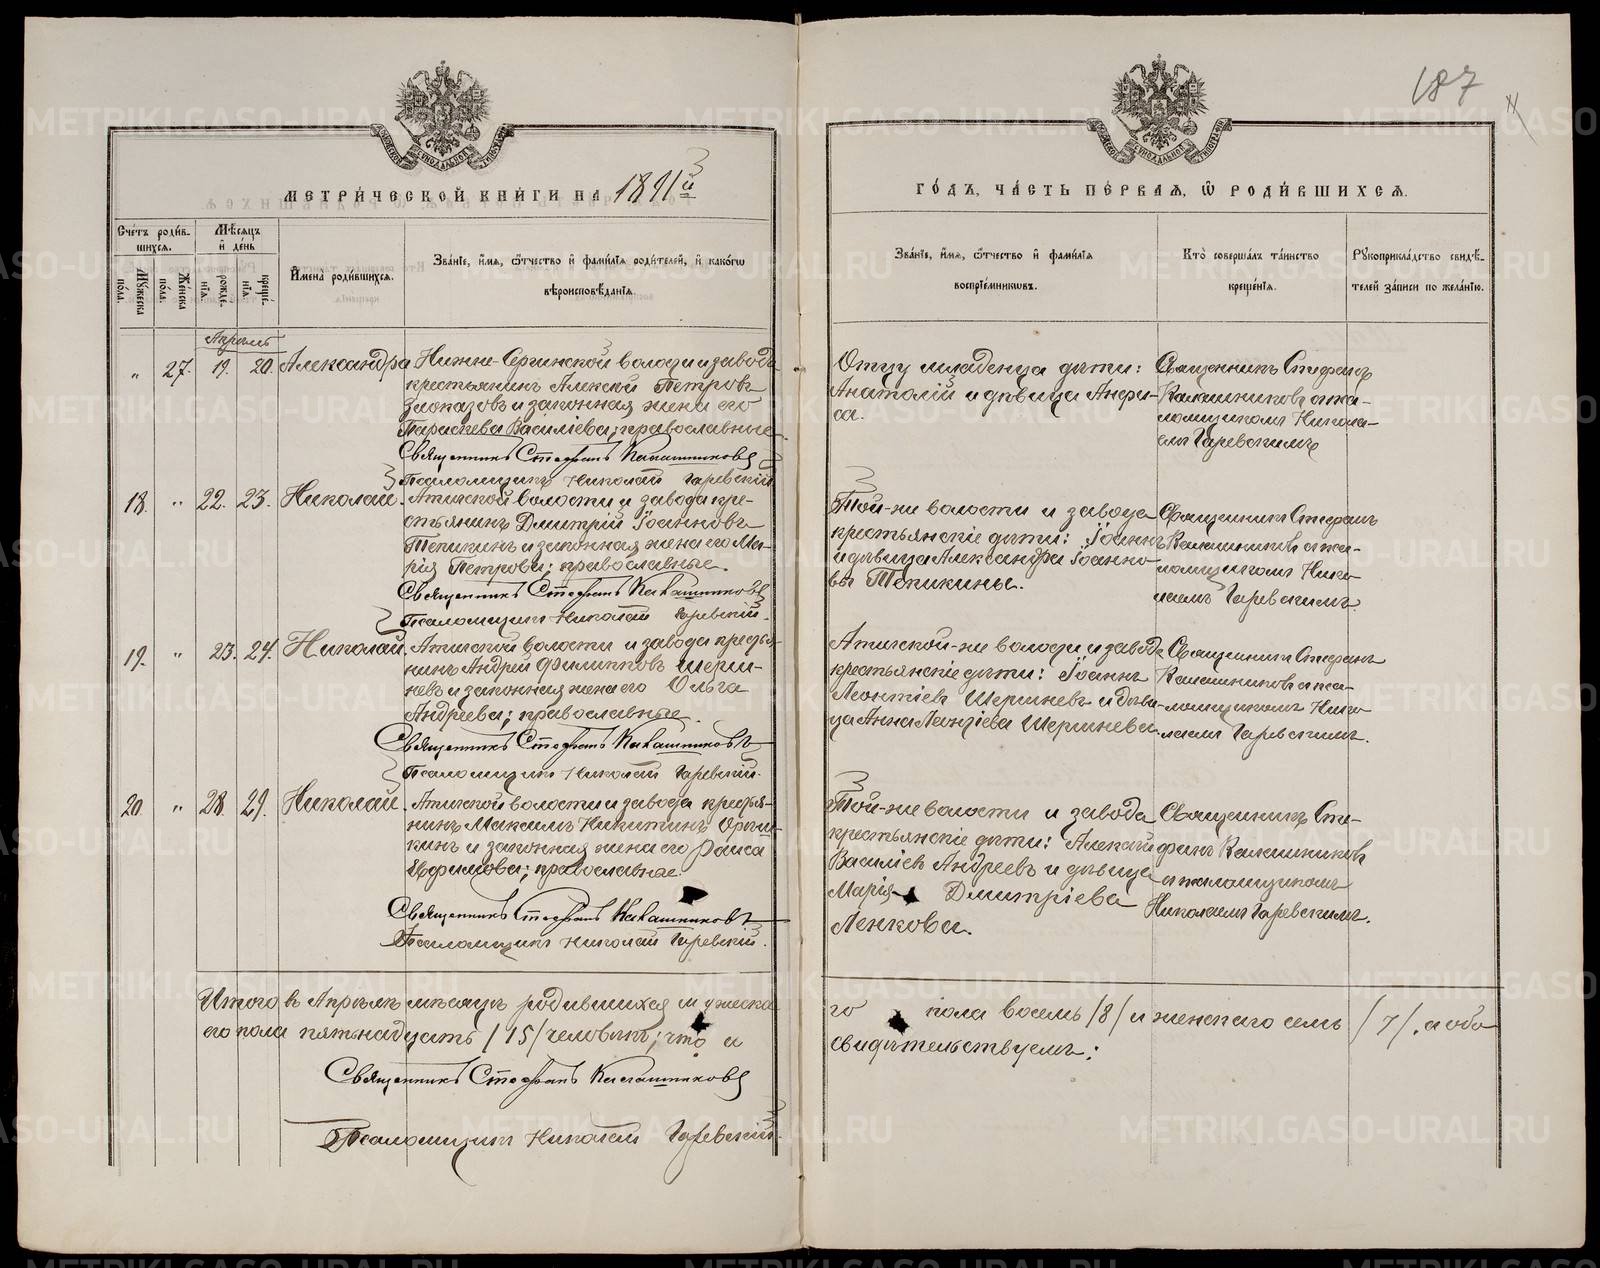 187
МЕТРИ́ЧЕСКОЙ КНИ́ГИ НА 1891й
ГО́ДЪ, ЧА́СТЬ ПЕ́РВАЯ, Ѡ҆ РОДИ́ВШИХСЯ.
Сче́тъ роди́в-
шихся.
Мꙋ́жеска
по́ла.
Же́нска
по́ла.
Мѣ́сяцъ
и҆ де́нь
рожде-
нія.
креще́-
нія.
И҆мена̀ роди́вшихся.
Зва́ніе, и҆́мя, ѻ҆́тчество и҆ фами́лія роди́телей, и҆ како́гѡ
вѣроисповѣ́данія.
Зва́ніе, и҆́мя, ѻ҆́тчество и҆ фами́лія
воспріе́мникѡвъ.
Кто̀ соверша́лъ та́инство
креще́нія.
Рꙋкоприкла́дство свидѣ́-
телей за́писи по жела́нію.
Апрѣль
" 27. 19. 20. Александра
Нижне-Сергинской волости и завода
крестьянинъ Алексѣй Петровъ
Злоказовъ и законная жена его
Параскева Василіева; православные.
Священникъ Стефанъ Калашниковъ
Псаломщикъ Николай Гаревскій
Отцу младенца дѣти:
Анатолій и дѣвица Анфи-
са.
Священникъ Стефанъ
Калашниковъ съ пса-
ломщикомъ Никола-
емъ Гаревскимъ
18. " 22. 23. Николай.
Атигской волости и завода кре-
стьянинъ Дмитрій Іоанновъ
Тепикинъ и законная жена его Ма-
рія Петрова; православные.
Священникъ Стефанъ Калашниковъ
Псаломщикъ Николай Гаревскій.
Той-же волости и завода
крестьянскіе дѣти: Іоаннъ
и дѣвица Александра Іоанно-
вы Тепикины.
Священникъ Стефанъ
Калашниковъ съ пса-
ломщикомъ Нико-
лаемъ Гаревскимъ
19. " 23. 24. Николай.
Атигской волости и завода кресть-
нинъ Андрей Филипповъ Шерш-
невъ и законная жена его Ольга
Андреева; православные.
Священникъ Стефанъ Калашниковъ
Псаломщикъ Николай Гаревскій.
Атигской-же волости и завода
крестьянскіе дѣти: Іоаннъ
Леонтіевъ Шершневъ и дѣви-
ца Анна Леонтіева Шершнева.
Священникъ Стефанъ
Калашниковъ съ пса-
ломщикомъ Нико-
лаемъ Гаревскимъ.
20. " 28. 29. Николай.
Атигской волости и завода крестья-
нинъ Максимъ Никитинъ
и законная жена его Раиса
Ефимова; православные.
Священникъ Стефанъ Калашниковъ
Псаломщикъ Николай Гаревскій.
Той-же волости и завода
крестьянскіе дѣти: Алексѣй
Василіевъ Андреевъ и дѣвица
Марія Дмитріева
Ленкова.
Священникъ Сте-
фанъ Калашниковъ
съ псаломщикомъ
Николаемъ Гаревскимъ.
Итого въ Апрѣлѣ мѣсяцѣ родившихся мужеска-
го пола восемь /8/ и женскаго семь /7/, а обо-
его пола пятнадцать /15/ человѣкъ; что и
свидѣтельствуемъ:
Священникъ Стефанъ Калашниковъ
Псаломщикъ Николай Гаревскій.
METRIKI.GASO-URAL.RU